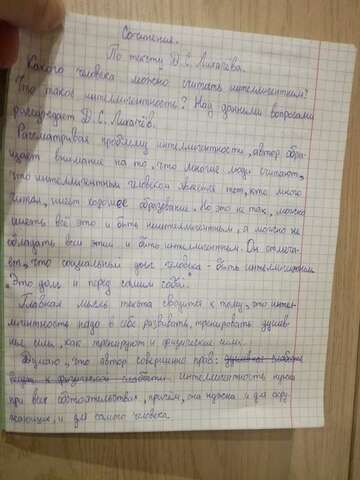 Сочинение.
По тексту Д.С. Лихачёва.
Какого человека можно считать интеллигентным?
Что такое интеллигентность? Над данными вопросами
размышляет Д.С. Лихачёв.
Рассматривая проблему интеллигентности, автор обра-
щает внимание на то, что многие люди считают,
что интеллигентным человеком является тот, кто много
читал, имеет хорошее образование. Но это не так, можно
иметь всё это и быть неинтеллигентным, а можно не
обладать всем этим и быть интеллигентом. Он отмеча-
ет, что социальный долг человека - быть интеллигентным.
"Это долг и перед самим собой."
Главная мысль текста сводится к тому, что интел-
лигентность надо в себе развивать, тренировать душев-
ные силы, как тренируют и физические силы.
Думаю, что автор совершенно прав: душевная слабость
ведёт к физической слабости. интеллигентность нужна
при всех обстоятельствах, причём, она нужна и для окру-
жающих, и для самого человека.